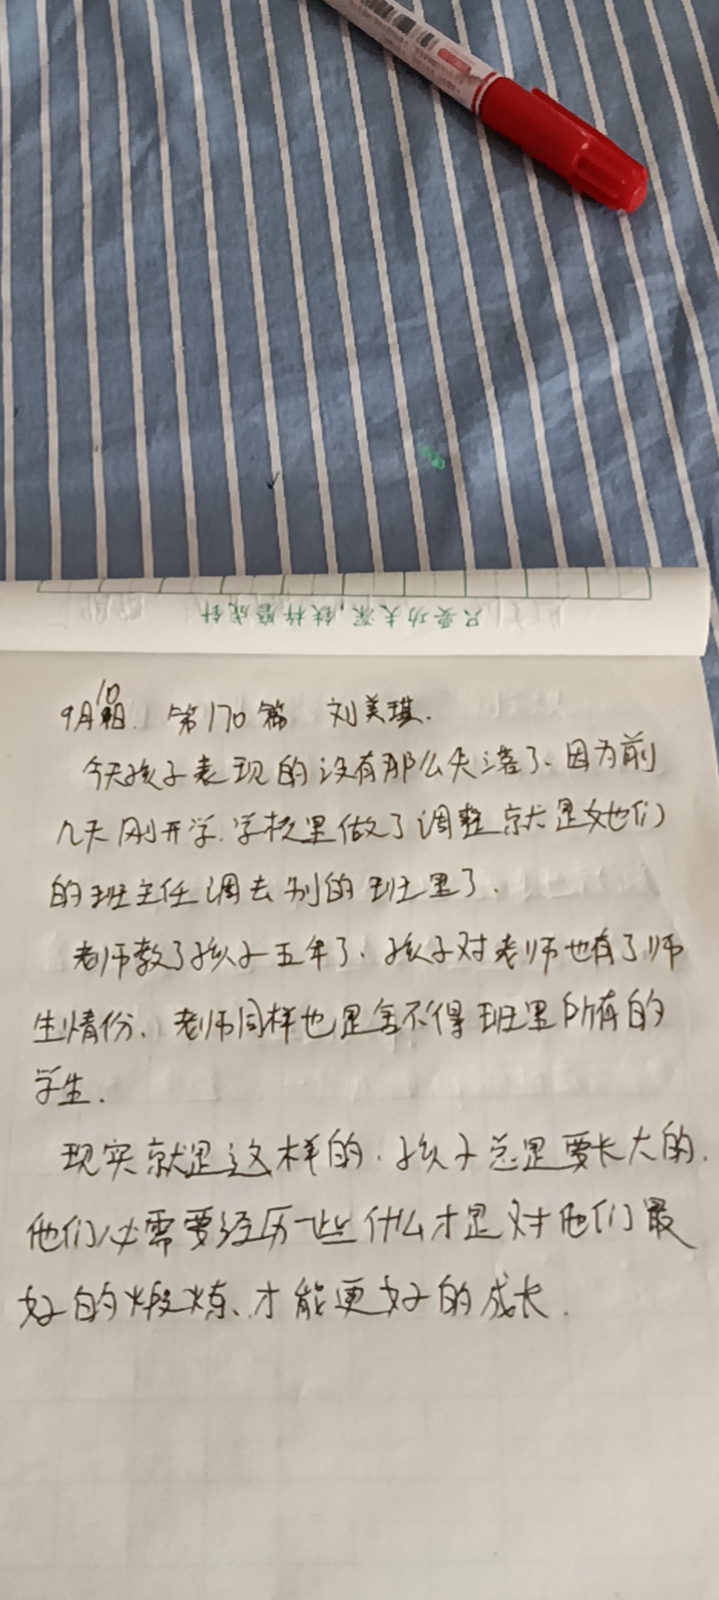 只要功夫深,铁杵磨成针
9月10日. 第170篇 刘美琪.
今天孩子表现的没有那么失落了、因为前
几天刚开学.学校里做了调整就是她们
的班主任调去别的班里了.
老师教了孩子五年了、孩子对老师也有了师
生情份、老师同样也是舍不得班里所有的
学生.
现实就是这样的.孩子总是要长大的.
他们必需要经历一些什么才是对他们最
好的煅炼、才能更好的成长.